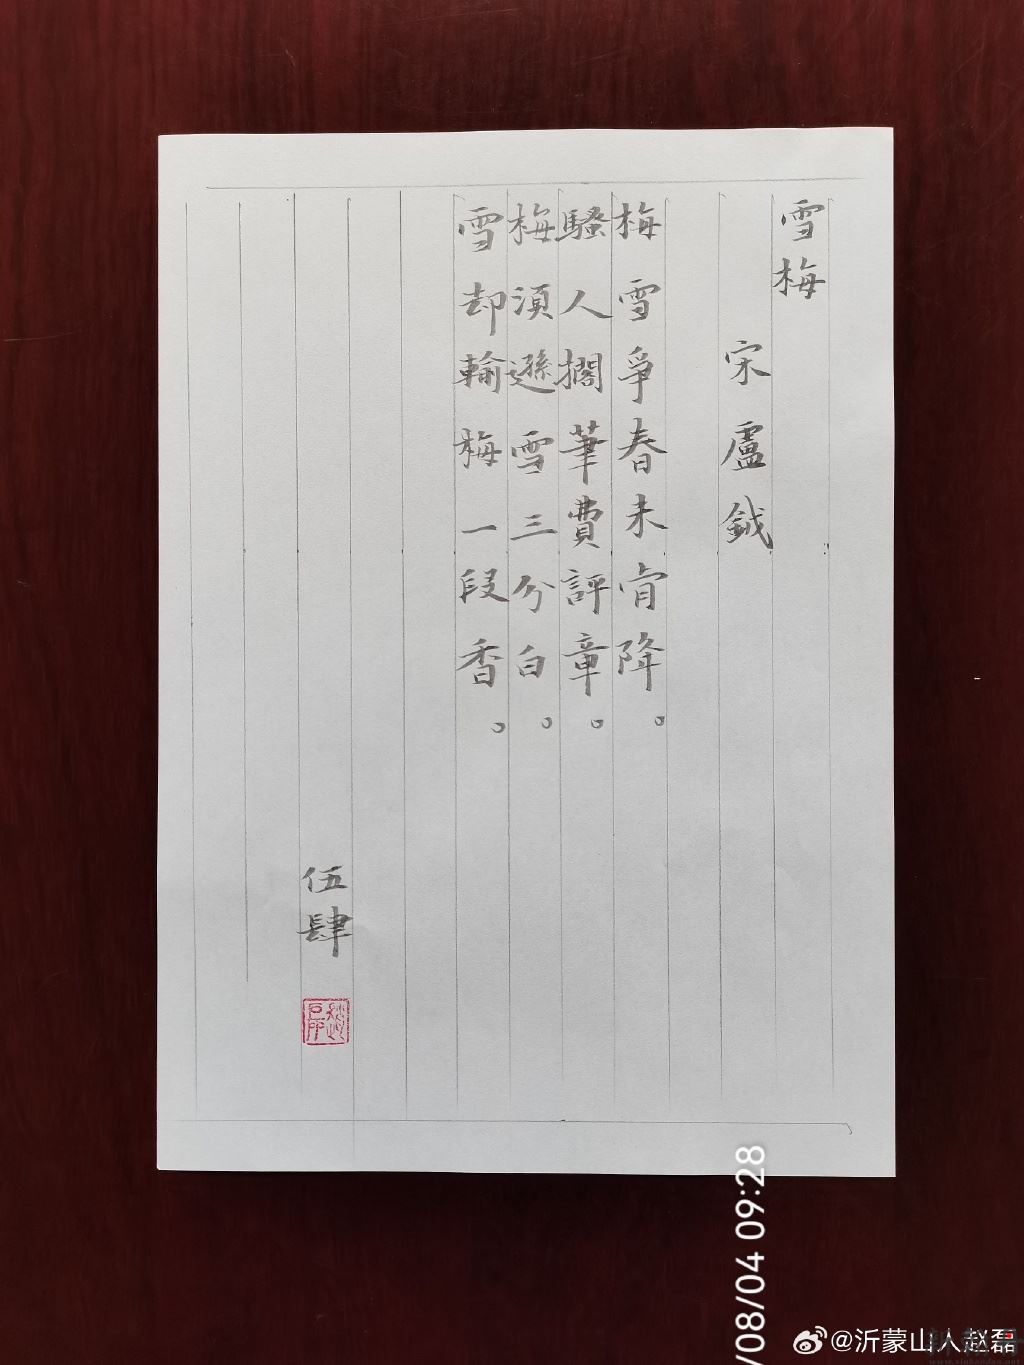 雪梅
宋盧鉞
梅雪爭春未肎降。
騷人擱筆費評章。
梅須遜雪三分白。
雪却輸梅一段香。
伍肆
/08/04 09:28
@沂蒙山人赵磊